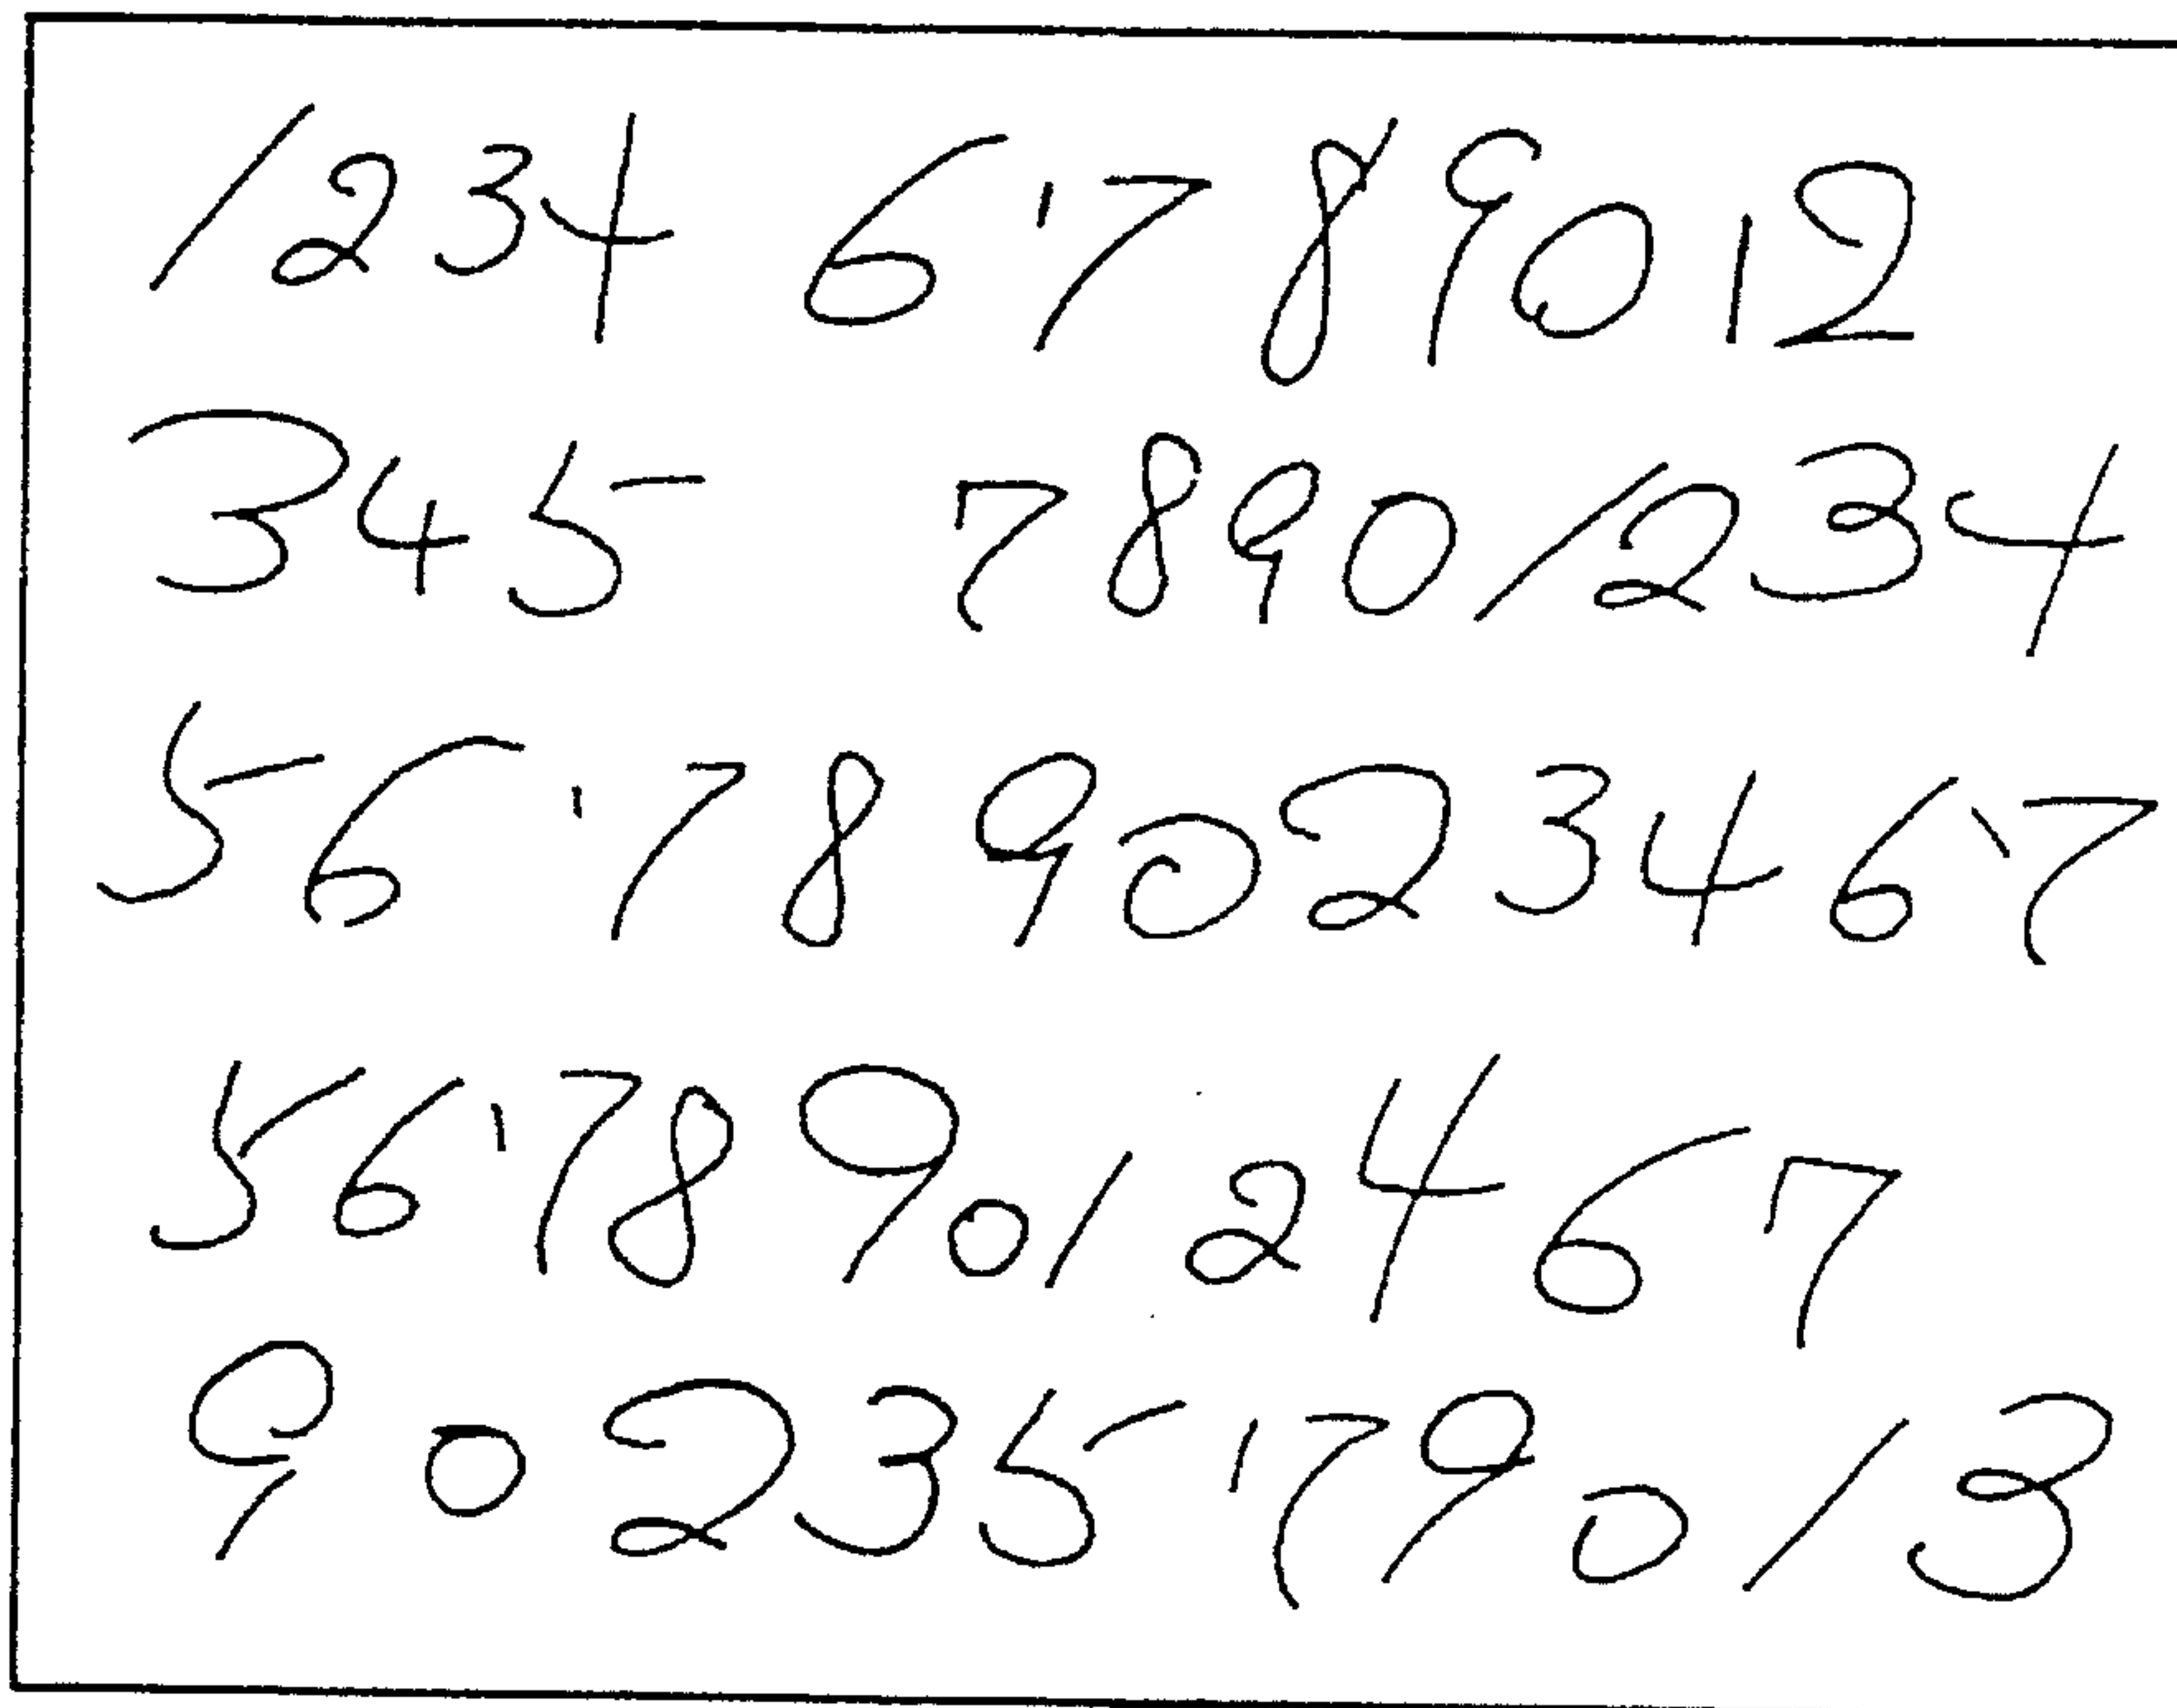 1234 6789012
345 78901234
56789023467
56789012467
9023579013